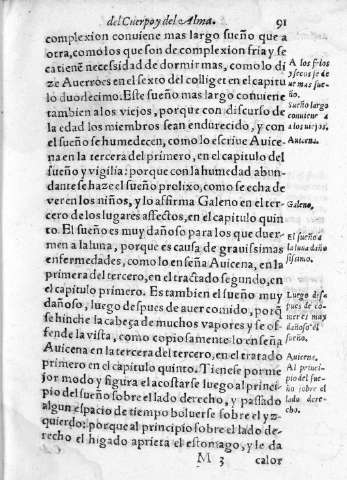 del Cuerpo y del Alma. 91
complexion conuiene mas largo sueño que a
otra, como los que son de complexion fria y se
ca tienē necessidad de dormir mas, como lo di
ze Auerroes en el sexto del colliget en el capitu
lo duodecimo. Este sueño mas largo conuiene
tambien a los viejos, porque con discurso de
la edad los miembros sean endurecido, y con
el sueño se humedecen, como lo escriue Auice
na en la tercera del primero, en el capitulo del
sueño y vigilia: porque con la humedad abun
dante se haze el sueño prolixo, como se echa de
ver en los niños, y lo affirma Galeno en el ter-
cero de los lugares affectos, en el capitulo quin
to. El sueño es muy dañoso para los que duer-
men a la luna, porque es causa de grauissimas
enfermedades, como lo enseña Auicena, en la
primera del tercero, en el tractado segundo, en
el capitulo primero. Es tambien el sueño muy
dañoso, luego despues de auer comido, porq̄
se hinche la cabeça de muchos vapores y se of-
fende la vista, como copiosamente lo enseña
Auicena en la tercera del tercero, en el tratado
primero en el capitulo quinto. Tienese por me
jor modo y figura el acostarse luego al princi-
pio del sueño sobre el lado derecho, y passado
algun espacio de tiempo boluerse sobre el yz-
quierdo: porque al principio sobre el lado de-
recho el higado aprieta el estomago, y le da
M 3 calor
A los frios
y secos se de
ue mas sue-
ño.
Sueño largo
conuiene a
los viejos.
Auicena.
Galeno.
El sueño a
la luna daño
sissimo.
Luego des-
pues de co-
mer es muy
dañoso el
sueño.
Auicena.
Al princi-
pio del sue-
ño sobre el
lado dere-
cho.